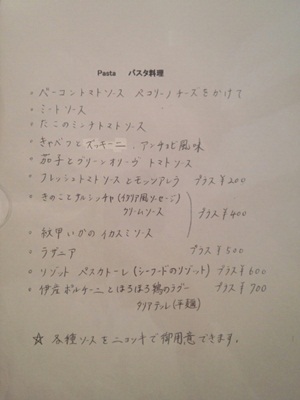 Pasta パスタ料理
・ベーコントマトソース ペコリーノチーズをかけて
・ミートソース
・たこのミンチトマトソース
・きゃべつとズッキーニ、アンチョビ風味
・茄子とグリーンオリーヴ トマトソース
・フレッシュトマトソースとモッツァレラ プラス¥200
・きのことサルシッチャ(イタリア風ソーセージ)
クリームソース プラス¥400
・紋甲いかのイカスミソース
・ラザニア プラス¥500
・リゾット ペスカトーレ(シーフードのリゾット) プラス¥600
・伊産ポルチーニとほろほろ鶏のラグー プラス¥700
タリアテッレ(平麺)
☆ 各種ソースをニョッキで御用意できます。